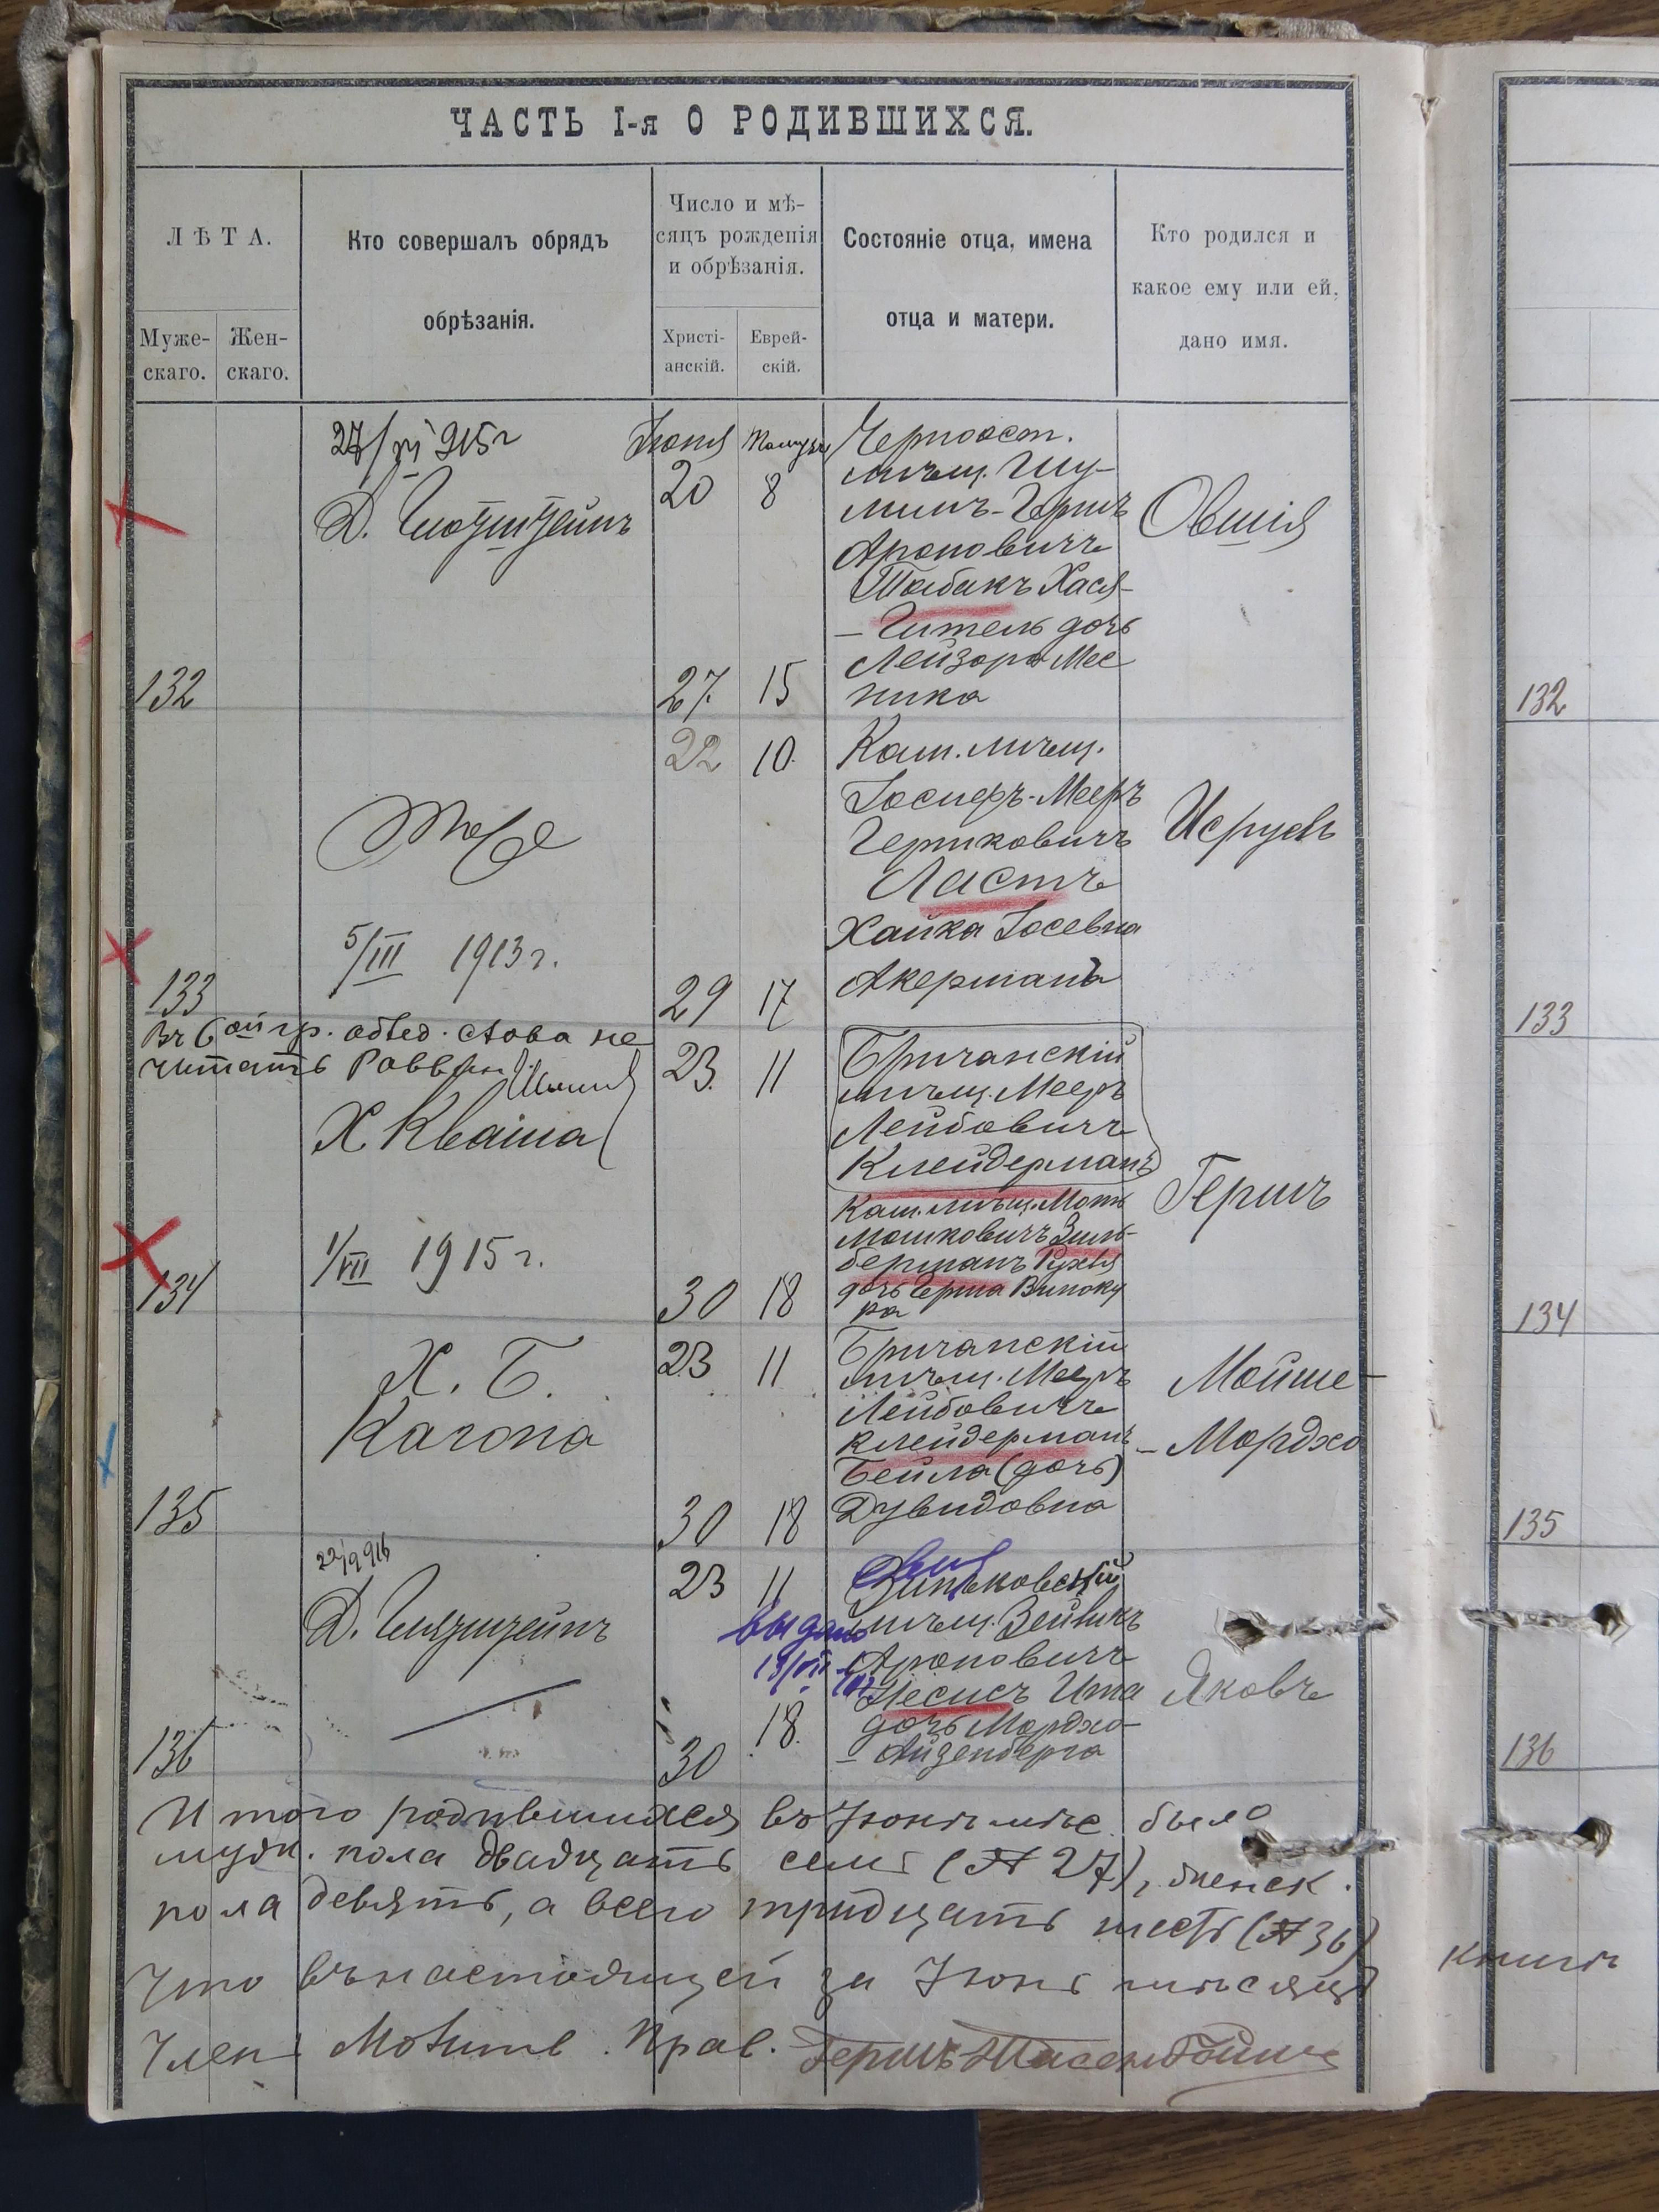 ЧАСТЬ I-я О РОДИВШИХСЯ.
ЛѢТА.
Муже-
скаго.
Жен-
скаго.
Кто совершалъ обрядъ
обрѣзанія.
Число и мѣ-
сяцъ рожденія
и обрѣзанія.
Христі-
анскій.
Еврей-
скій.
Состояніе отца, имена
отца и матери.
Кто родился и
какое ему или ей,
дано имя.
132
915г
Д.
Іюня
20
8
27
15
Черноост.
мѣщ. Шу-
лимъ-Гершъ
Ароновичъ
Табакъ Хася-
-Гитель дочь
Лейзора Мес
ника
Овшія
132
133
Тоже
5/III 1913 г.
22
10
29
17
Кам. мѣщ.
Іосифъ-Мееръ
Гершковичъ
Ластъ
Хайка Іосевна
Акерманъ
Исруль
133
Въ 6ой гр. обвед. слова не
читать Раввинъ
134
Х Кваша
1/VII 1915 г.
23
11
30
18
Бричанскій
мѣщ. Мееръ
Лейбовичъ
Клейдерманъ
Кам. мѣщ. Моть
Мошковичъ Зиль-
берманъ Рухля
дочь Герша Виноку
ра
Гершъ
134
135
Х. Б.
Кагона
23
11
30
18
Бричанскій
мѣщ. Мееръ
Лейбовичъ
Клейдерманъ
Бейла (дочь)
Дувидовна
Мойше-
-Мордхо
135
136
22/9 916
Д.
23
11
30
18
выдано
Зиньковскій
мѣщ. Зейликъ
Ароновичъ
Несисъ Ита
дочь Мордхо-
-Айзенберга
Яковъ
136
Итого родившихся въ Іюнѣ мѣс. было
муж. пола двадцать семь (№ 27), женск.
пола девять, а всего тридцать шесть (№ 36)
Что въ настоящей за Іюнь мѣсяцъ
книгѣ
Членъ Молитв. Прав. Гершъ